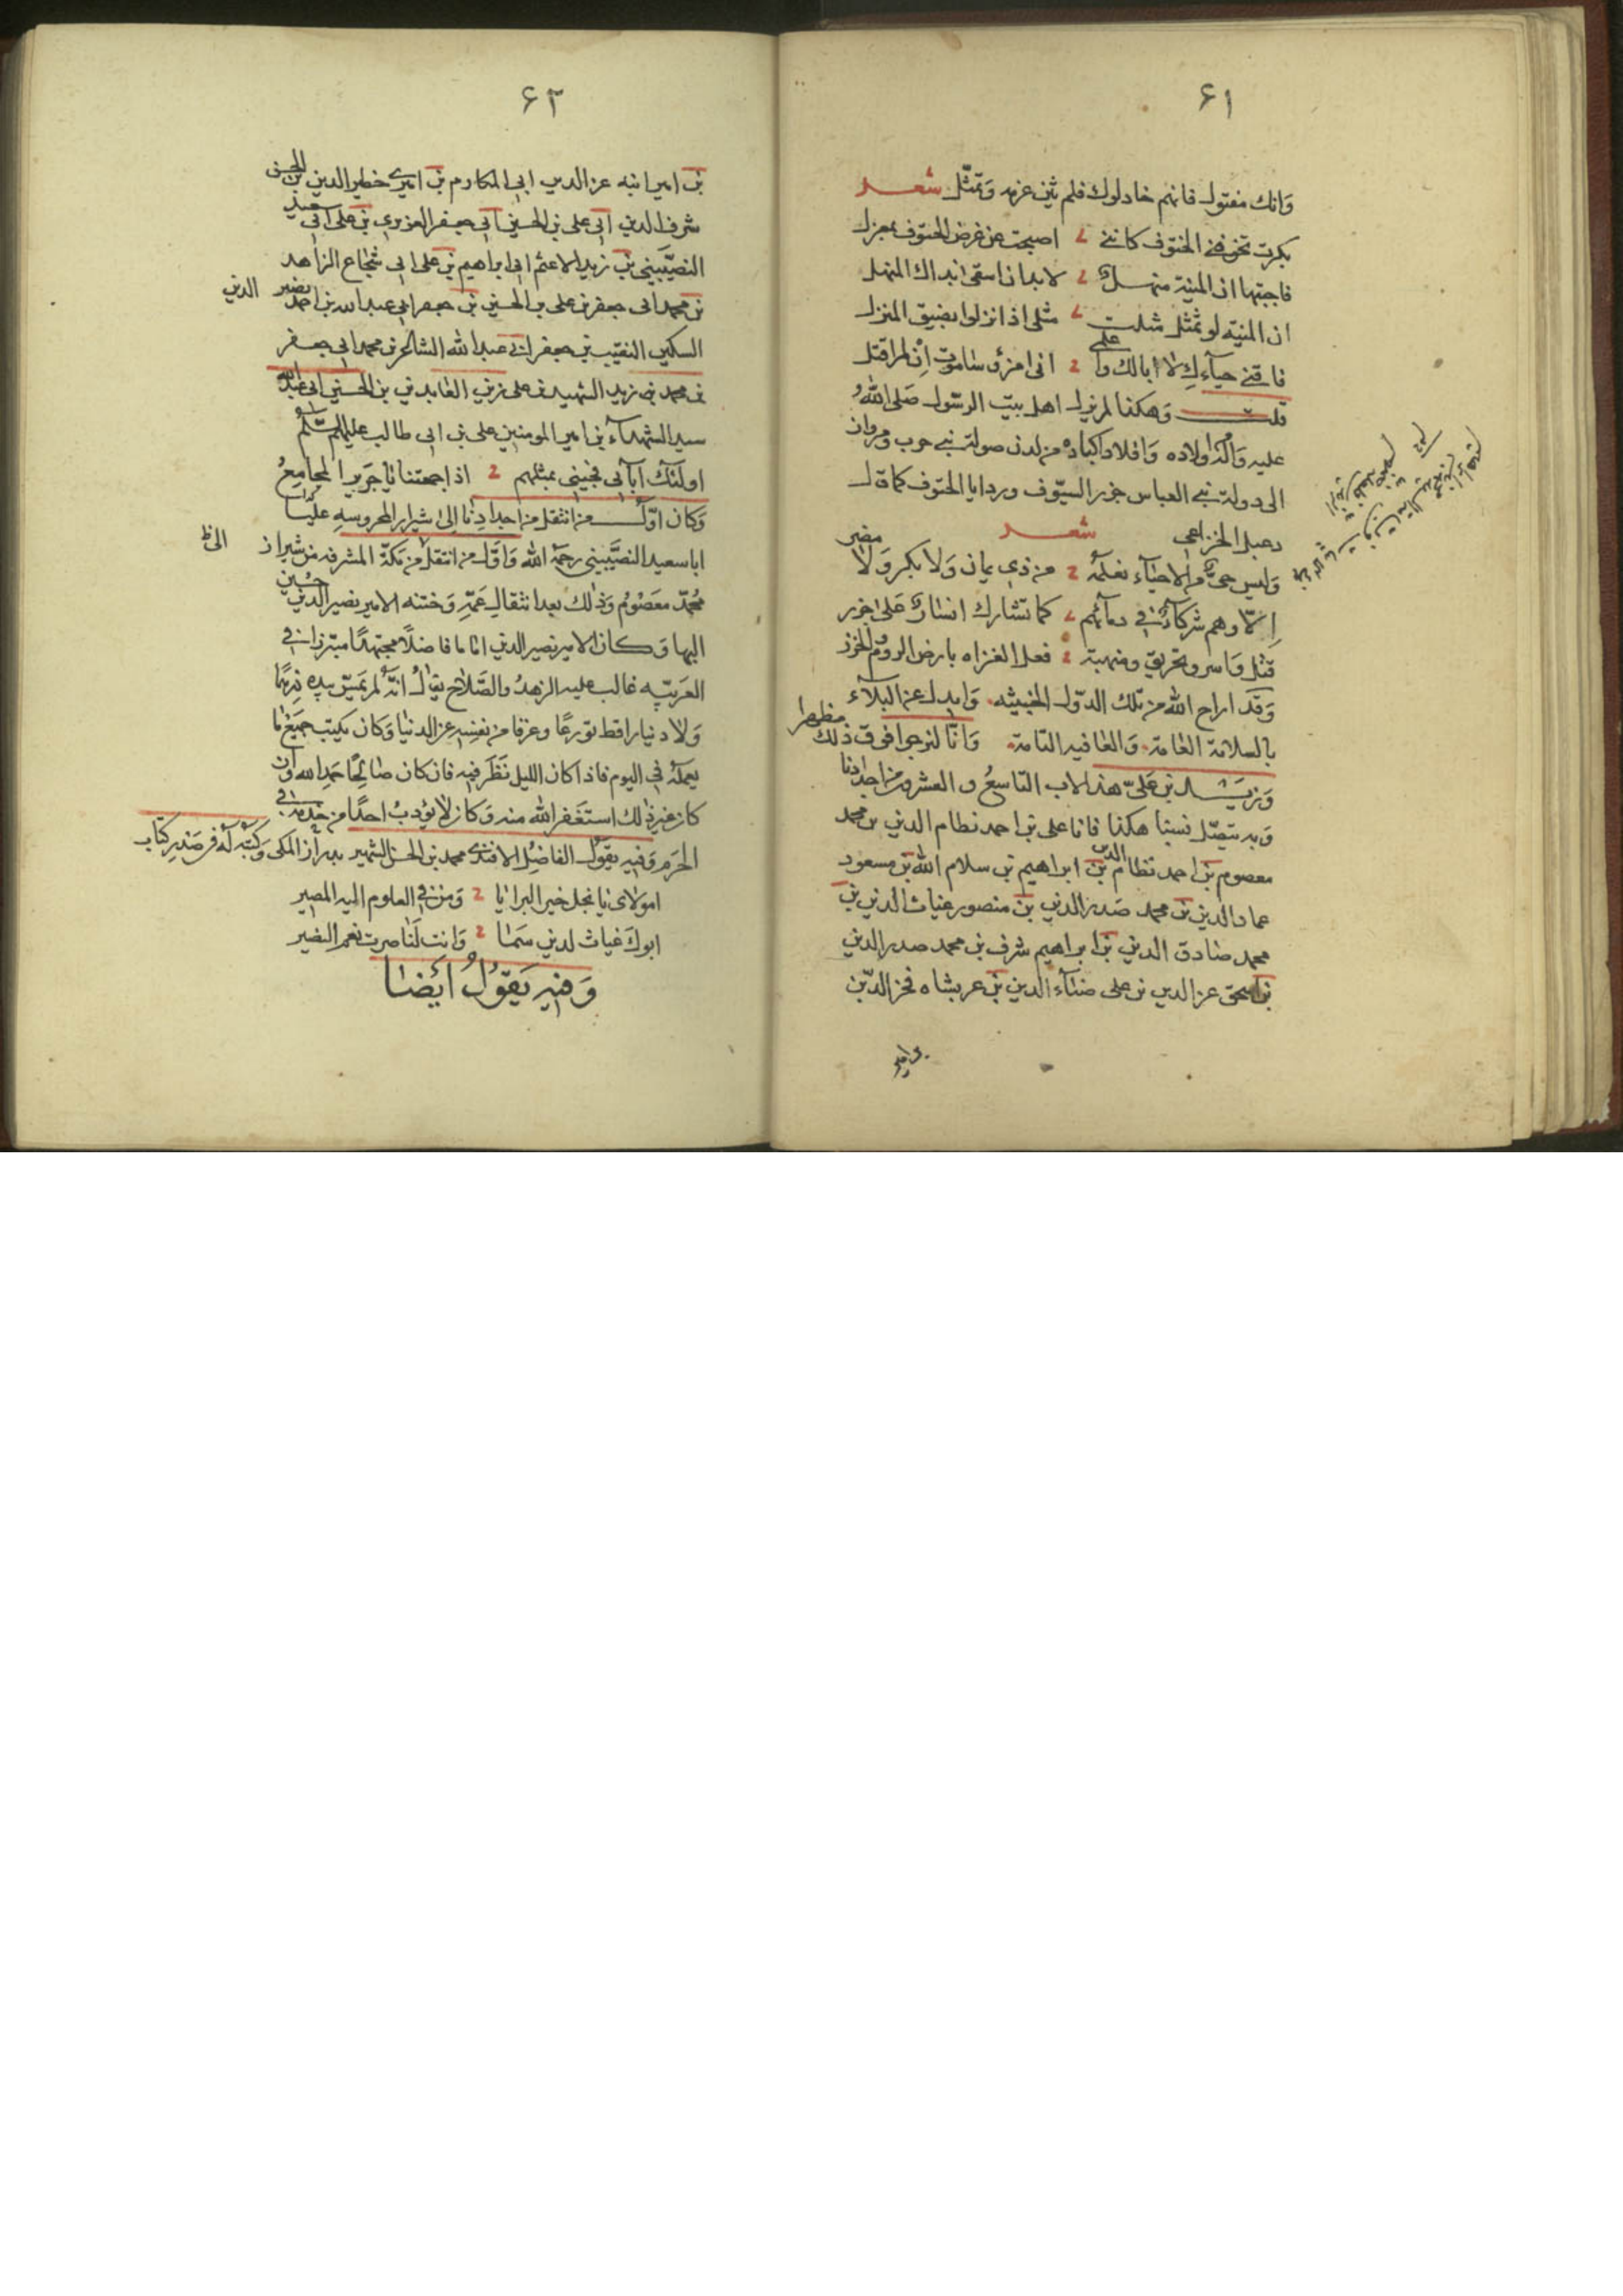 ٦١
وانك مقتول فانهم خاذلوك فلم يثن عزمه وتمثل شعر
بكرت تخوفني الحتوف كانني اصبحت عن غرض الحتوف بمعزل
فاجبتها ان المنية منهل لا بد ان اسقى بذاك المنهل
ان المنيه لو تمثل مثلت مثلى اذا نزلوا بضيق المنزل
فاقني حياءك لا ابا لك واعلمي انى امرؤ ساموت ان لم اقتل
قلت وهكذا لم يزل اهل بيت الرسول صلى الله
عليه وآله واولاده وافلاذ اكباده من لدن صولة بني حرب ومروان
الى دولة بني العباس جزر السيوف ورذايا الحتوف كما قال
دعبل الخزاعى شعر
وليس حى من الاحياء نعلمه من ذى يمان ولا بكر ولا مضر
الا وهم شركاء في دمائهم كما تشارك ايسار على جزر
قتل واسر وتحريق ومنهبة فعل الغزاه بارض الروم والخزر
وقد اراح الله من تلك الدول الخبيثه وابدل عن البلاء
بالسلامة العامة والعافيه التامة وانا لنرجو فوق ذلك مظهرا
وزيد بن على هذا الاب التاسع والعشرون من اجدادنا
وبه يتصل نسبنا هكذا فانا على بن احمد نظام الدين بن محمد
معصوم بن احمد نظام الدين بن ابراهيم بن سلام الله بن مسعود
عماد الدين بن محمد صدر الدين بن منصور غياث الدين بن
محمد صادق الدين بن ابراهيم شرف بن محمد صدر الدين
بن اسحق عز الدين بن على ضياء الدين بن عربشاه فخر الدين
بن امير
٦٢
بن امير انبه عز الدين ابى المكارم بن اميرى خطير الدين بن الحسن
شرف الدين ابى على بن الحسين ابى جعفر العزيزى بن على ابى سعيد
النصيبيني بن زيد الاعثم ابى ابراهيم بن على ابى شجاع الزاهد
بن محمد ابى جعفر بن على بن الحسين بن جعفر ابى عبد الله بن احمد نصير الدين
السكين النقيب بن جعفر ابى عبد الله الشاعر بن محمد ابى جعفر
بن محمد بن زيد الشهيد بن على زين العابدين بن الحسين ابى عبد الله
سيد الشهداء بن امير المومنين على بن ابى طالب عليهم السلم
اولئك آبائى فجئنى بمثلهم اذا جمعتنا يا جرير المجامع
وكان اول من انتقل من اجدادنا الى شيراز المحروسه عليا
ابا سعيد النصيبينى رحمه الله واول من انتقل من مكة المشرفه من شيراز
محمد معصوم وذلك بعد انتقال عمه وختنه الامير نصير الدين حسين
اليها وكان الامير نصير الدين اماما فاضلا مجتهدا مبرزا في
العربيه غالب عليه الزهد والصلاح يقال انه لم يمس بيده درهما
ولا دينارا قط تورعا وعزفا من نفسه عن الدنيا وكان يكتب جميع ما
يعمله في اليوم فاذا كان الليل نظر فيه فان كان صالحا حمد الله وان
كان غير ذلك استغفر الله منه وكان لا يؤدب احدا من خدمه في
الحرم وفيه يقول الفاضل الافندى محمد بن الحسن الشهير بدراز المكى وكتبه له في صدر كتاب
امولاى يا نجل خير البرايا ومن في العلوم اليه المصير
ابوك غياث لدين سما وانت لنا صرت نعم النصير
وفيه يقول ايضا